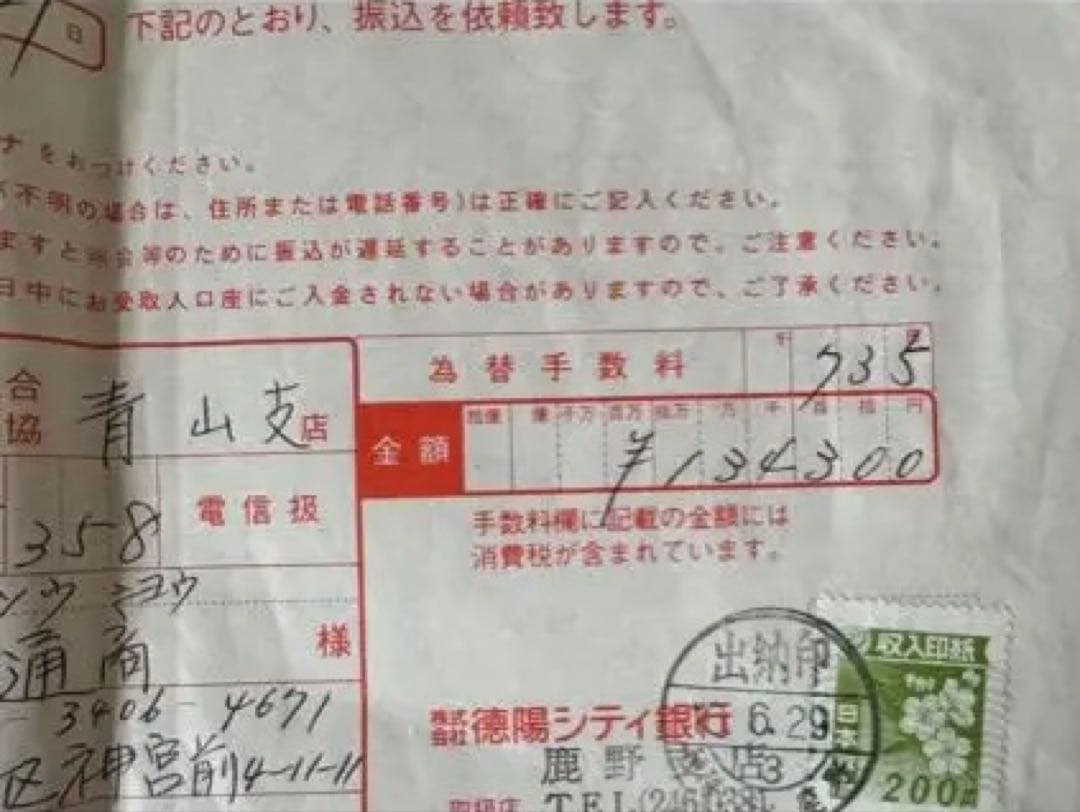 日 下記のとおり、振込を依頼致します。
ナをおつけください。
不明の場合は、住所または電話番号)は正確にご記入ください。
ますと照会等のために振込が遅延することがありますので、ご注意ください。
日中にお受取人口座にご入金されない場合がありますので、ご了承ください。
為替手数料 千 735
合
協 青山支店
金額 拾億 億 千万 百万 拾万 万 千 百 拾 円
¥134300
358 電信扱
手数料欄に記載の金額には
消費税が含まれています。
ツウショウ
通商 様
3406-4671
区神宮前4-11-11
出納印
6.29
収入印紙
日本
200円
株式会社 徳陽シティ銀行
鹿野支店
取扱店 TEL(246)